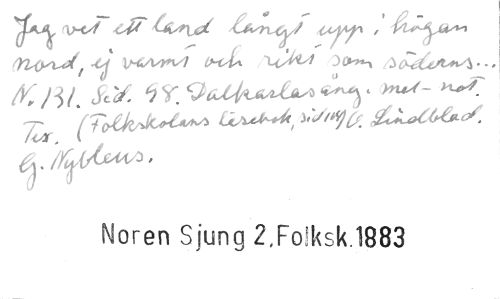 Jag vet ett land långt upp i högan
nord, ej varmt och rikt som söderns...
N. 131. Sid. 98. Dalkarlasång. mel-not.
Tex. (Folkskolans läsebok, sid 104) O. Lindblad.
G. Nybleus.
Noren Sjung 2, Folksk. 1883